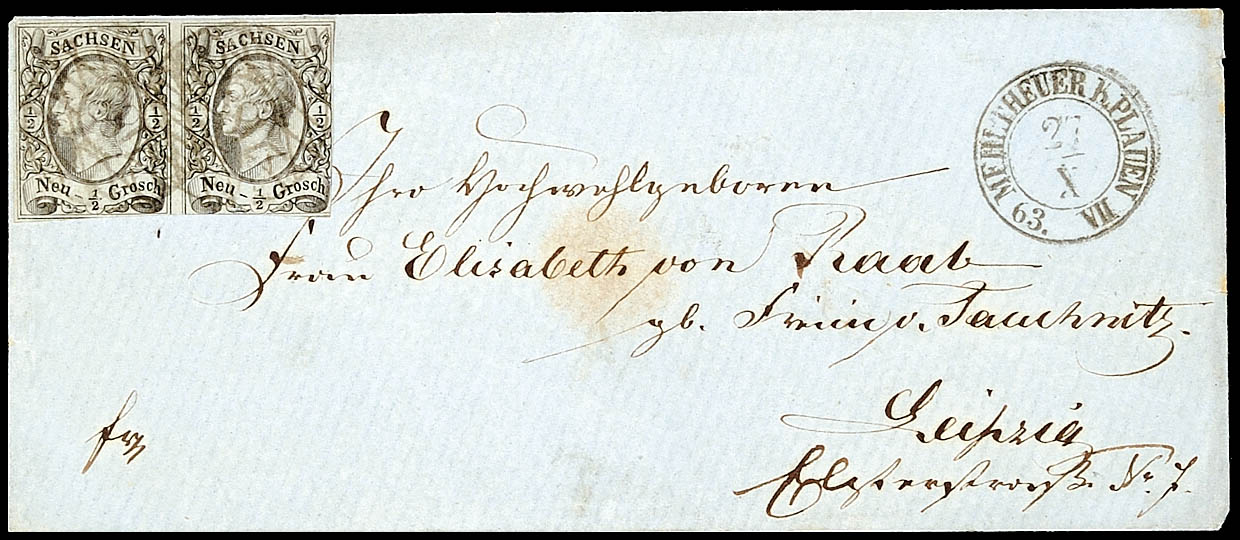 SACHSEN
½ ½
Neu - ½ Grosch
SACHSEN
½ ½
Neu - ½ Grosch
MEHLTHEUER b. PLAUEN VII
27
X
63.
Ihro Hochwohlgeboren
Frau Elisabeth von Raab
gb. Freiin v. Tauchnitz.
Leipzig
Elsterstraße. Nr. 7.
fr